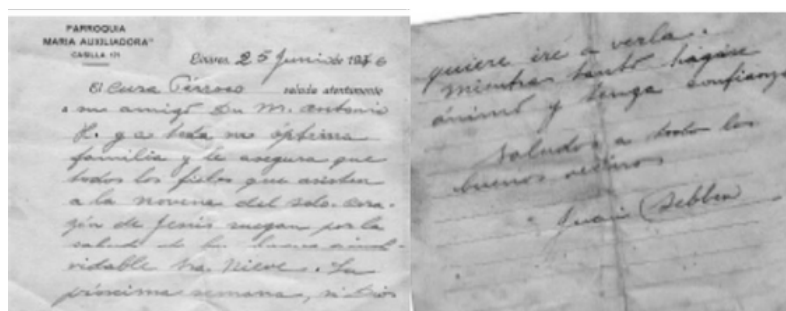 PARROQUIA
MARIA AUXILIADORA
CASILLA 171
25 Junio de 1936
El Cura Párroco saluda atentamente
a su amigo Dn M. Antonio
L. y a toda su óptima
familia y le asegura que
todos los fieles que asisten
a la novena del sdo. Cora-
zón de Jesús ruegan por la
salud de la buena e inol-
vidable Sra. Nieve. La
próxima semana, si Dios
quiere iré a verla.
Mientras tanto hágase
ánimo y tenga confianza
Saludos a todos los
buenos vecinos
Juan